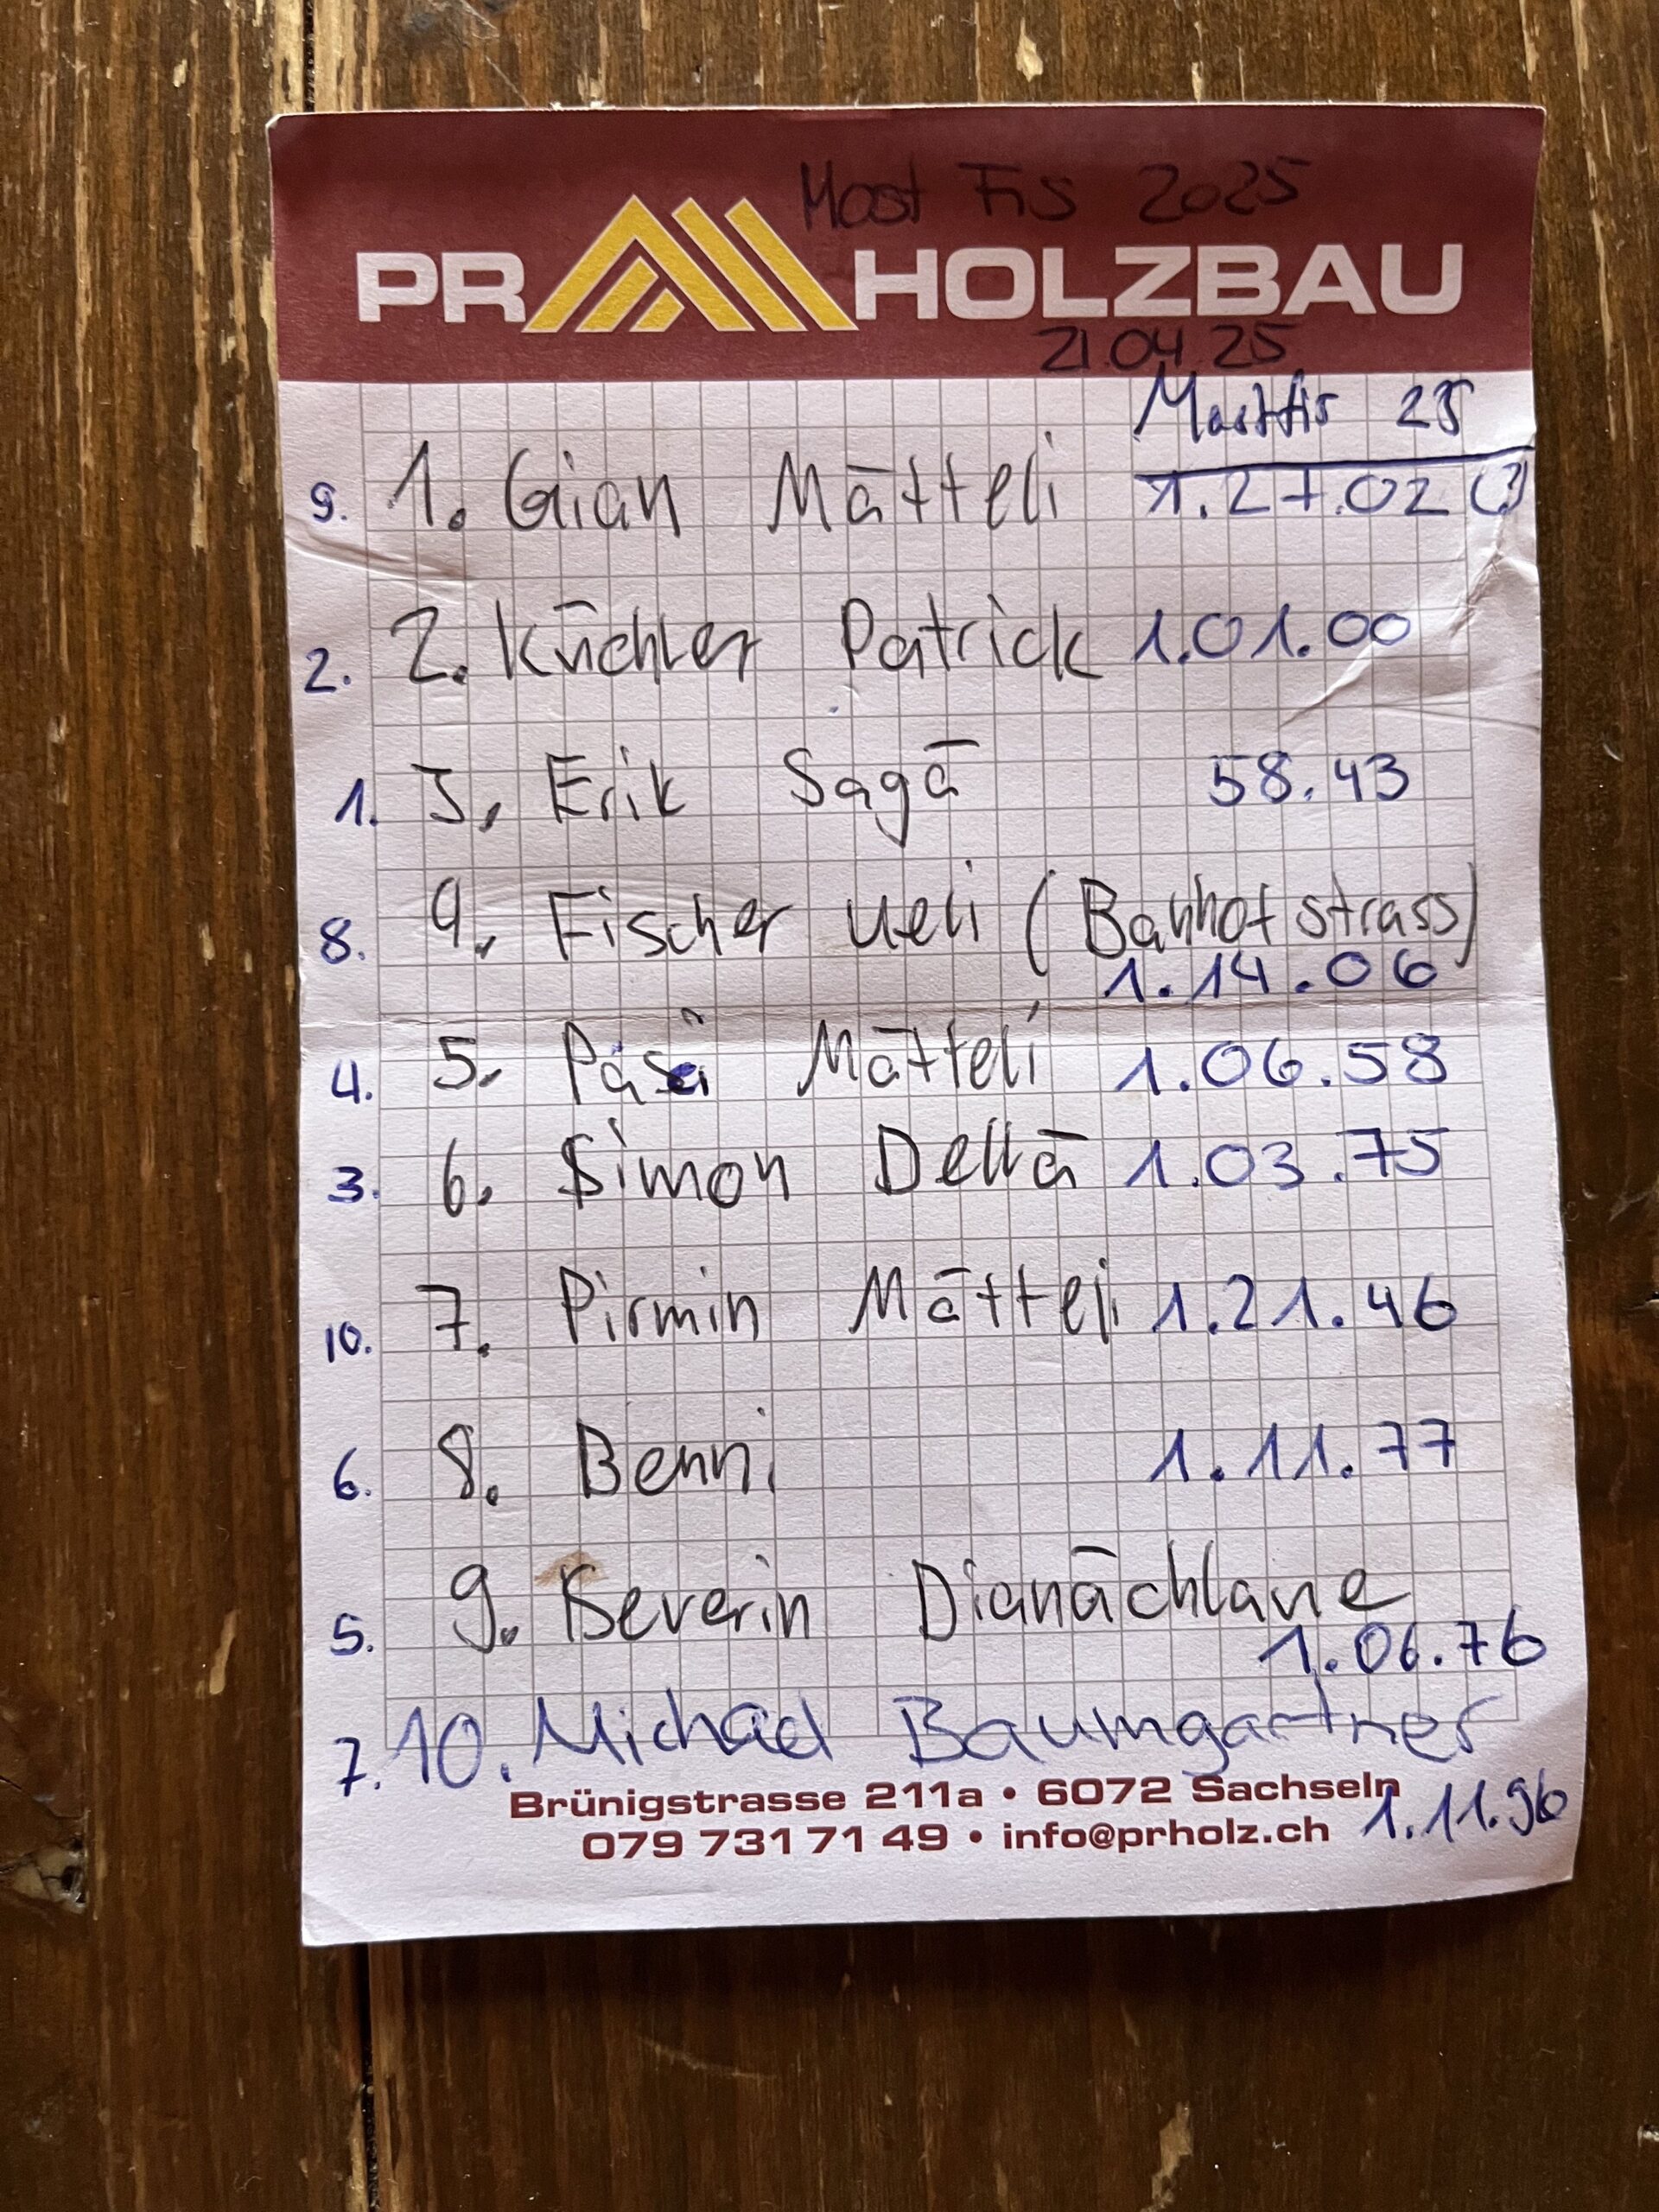 Most Fis 2025
PR HOLZBAU
21.04.25
Mostfis 25
9. 1. Gian Mätteli 1.27.02 (3)
2. 2. Küchler Patrick 1.01.00
1. 3. Erik Sagā 58.43
8. 4. Fischer Ueli (Bahnhofstrass)
1.14.06
4. 5. Mätteli 1.06.58
3. 6. Simon Dellā 1.03.75
10. 7. Pirmin Mätteli 1.21.46
6. 8. Benni 1.11.77
5. 9. Severin
1.06.76
7. 10. Michael Baumgartner
Brünigstrasse 211a • 6072 Sachseln
079 731 71 49 • info@prholz.ch 1.11.96